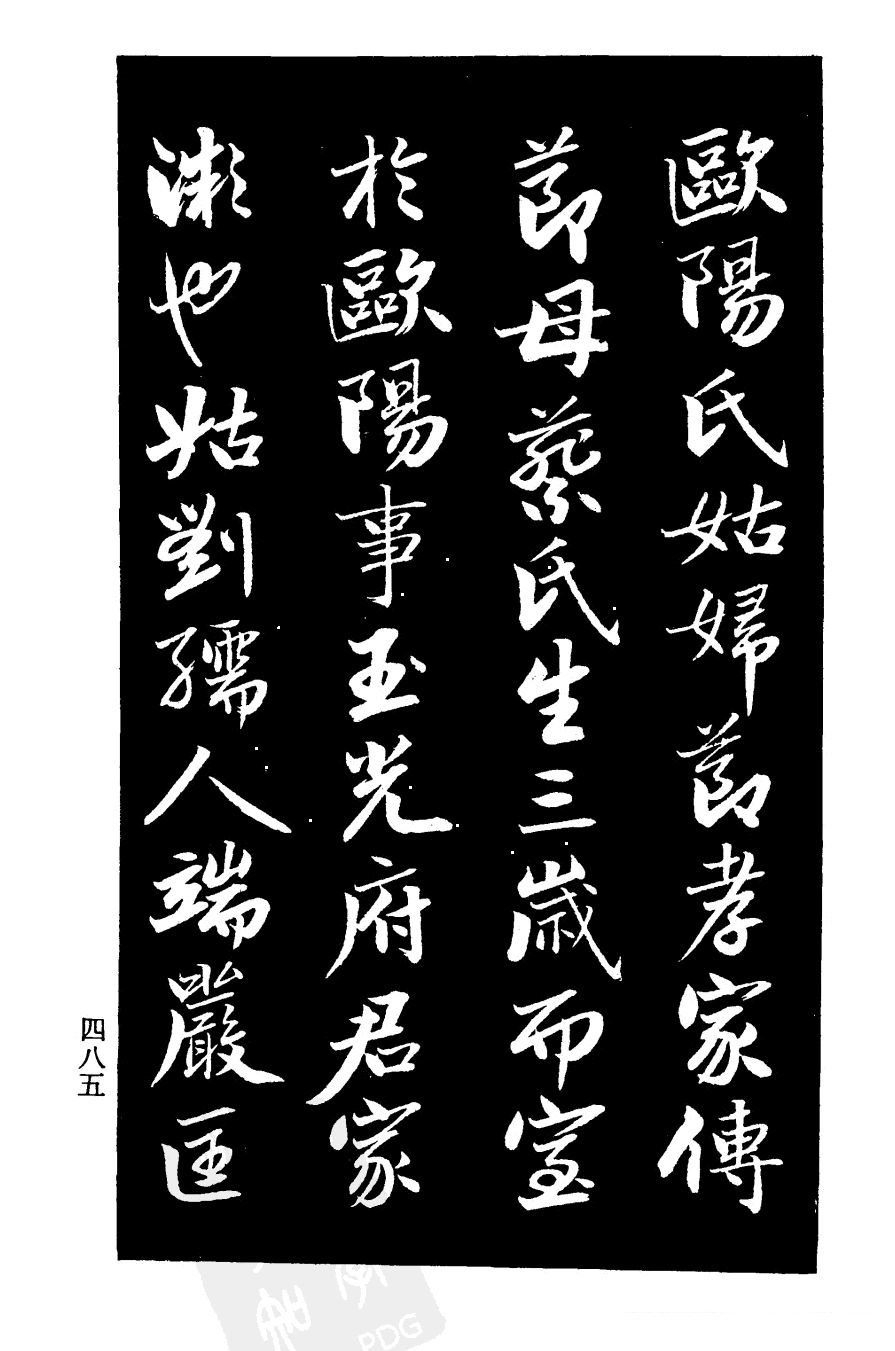 歐陽氏姑婦節孝家傳
節母蔡氏生三歲而室
於歐陽事玉光府君家
漸也姑劉孺人端嚴匡
四八五
PDG